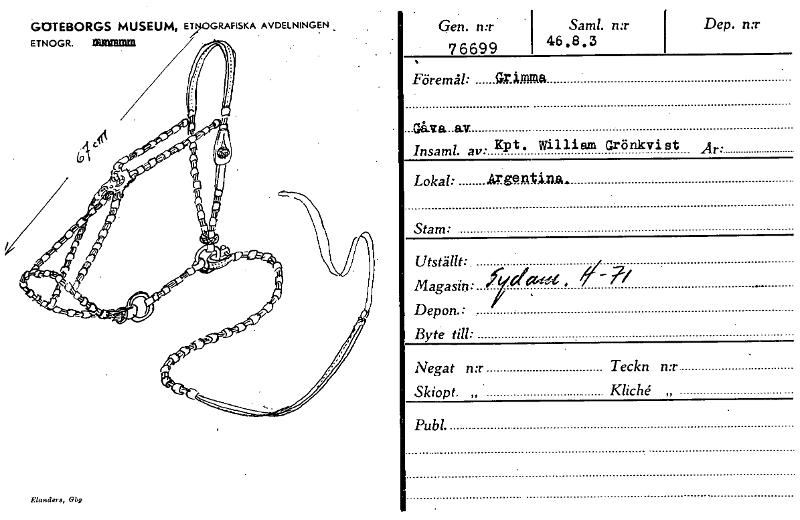 GÖTEBORGS MUSEUM, ETNOGRAFISKA AVDELNINGEN
ETNOGR.
67 cm
Elanders, Gbg
Gen. n:r Saml. n:r Dep. n:r
76699 46.8.3
Föremål: Grimma
Gåva av
Insaml. av: Kpt. William Grönkvist År:
Lokal: Argentina.
Stam:
Utställt:
Magasin: Sydam. H-71
Depon.:
Byte till:
Negat n:r Teckn n:r
Skiopt. „ Kliché „
Publ.